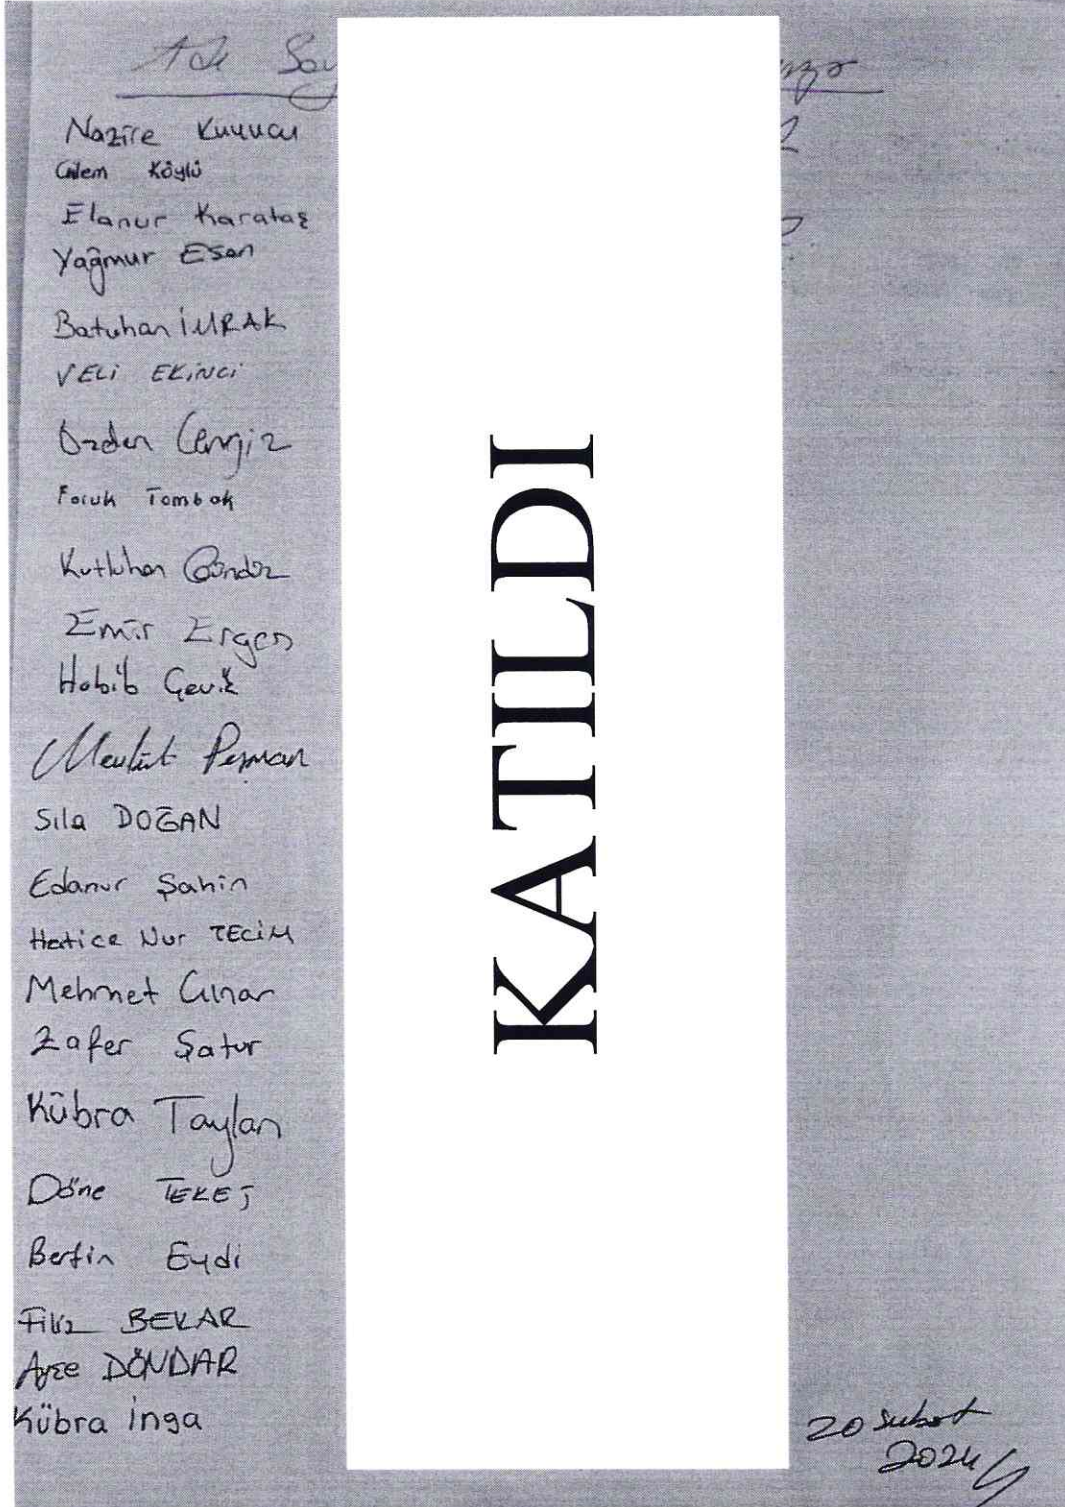 Adı Soy
Nazire Kuyucu
Çilem Köylü
Elanur Karataş
Yağmur Esen
Batuhan İMRAK
VELİ EKİNCİ
Özden Cengiz
Faruk Tombak
Kutluhan Gündüz
Emir Ergen
Habib Çevik
Mevlüt Peşman
Sıla DOĞAN
Edanur Şahin
Hatice Nur TECİM
Mehmet Çınar
Zafer Şatur
Kübra Taylan
Döne TEKEŞ
Berfin Eydi
Filiz BEKAR
Ayşe DÖNDAR
Kübra İnga
KATILDI
20 Şubat
2024